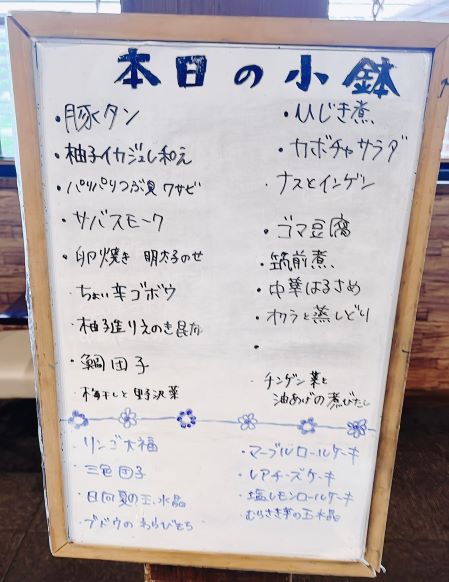 本日の小鉢
・豚タン
・柚子イカジュレ和え
・パリパリつぶ貝ワサビ
・サバスモーク
・卵焼き 明太子のせ
・ちょい辛ゴボウ
・柚子造りえのき昆布
・鯛団子
・梅干しと野沢菜
・ひじき煮
・カボチャサラダ
・ナスとインゲン
・ゴマ豆腐
・筑前煮
・中華はるさめ
・オクラと蒸しどり
・
・チンゲン菜と
油あげの煮びたし
・リンゴ大福
・三色団子
・日向夏の玉水晶
・ブドウのわらびもち
・マーブルロールケーキ
・レアチーズケーキ
・塩レモンロールケーキ
・むらさき芋の玉水晶